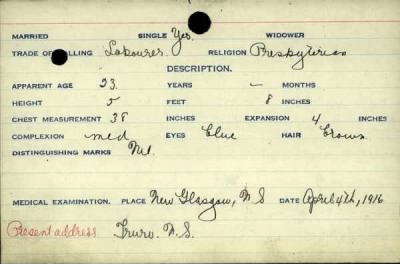 MARRIED SINGLE Yes. WIDOWER
TRADE OR CALLING Labourer. RELIGION Presbyterian
DESCRIPTION.
APPARENT AGE 23. YEARS — MONTHS
HEIGHT 5 FEET 8 INCHES
CHEST MEASUREMENT 38 INCHES EXPANSION 4 INCHES
COMPLEXION med EYES blue HAIR brown
DISTINGUISHING MARKS Nil.
MEDICAL EXAMINATION. PLACE New Glasgow, N S DATE April 4th, 1916
Present address Truro. N.S.